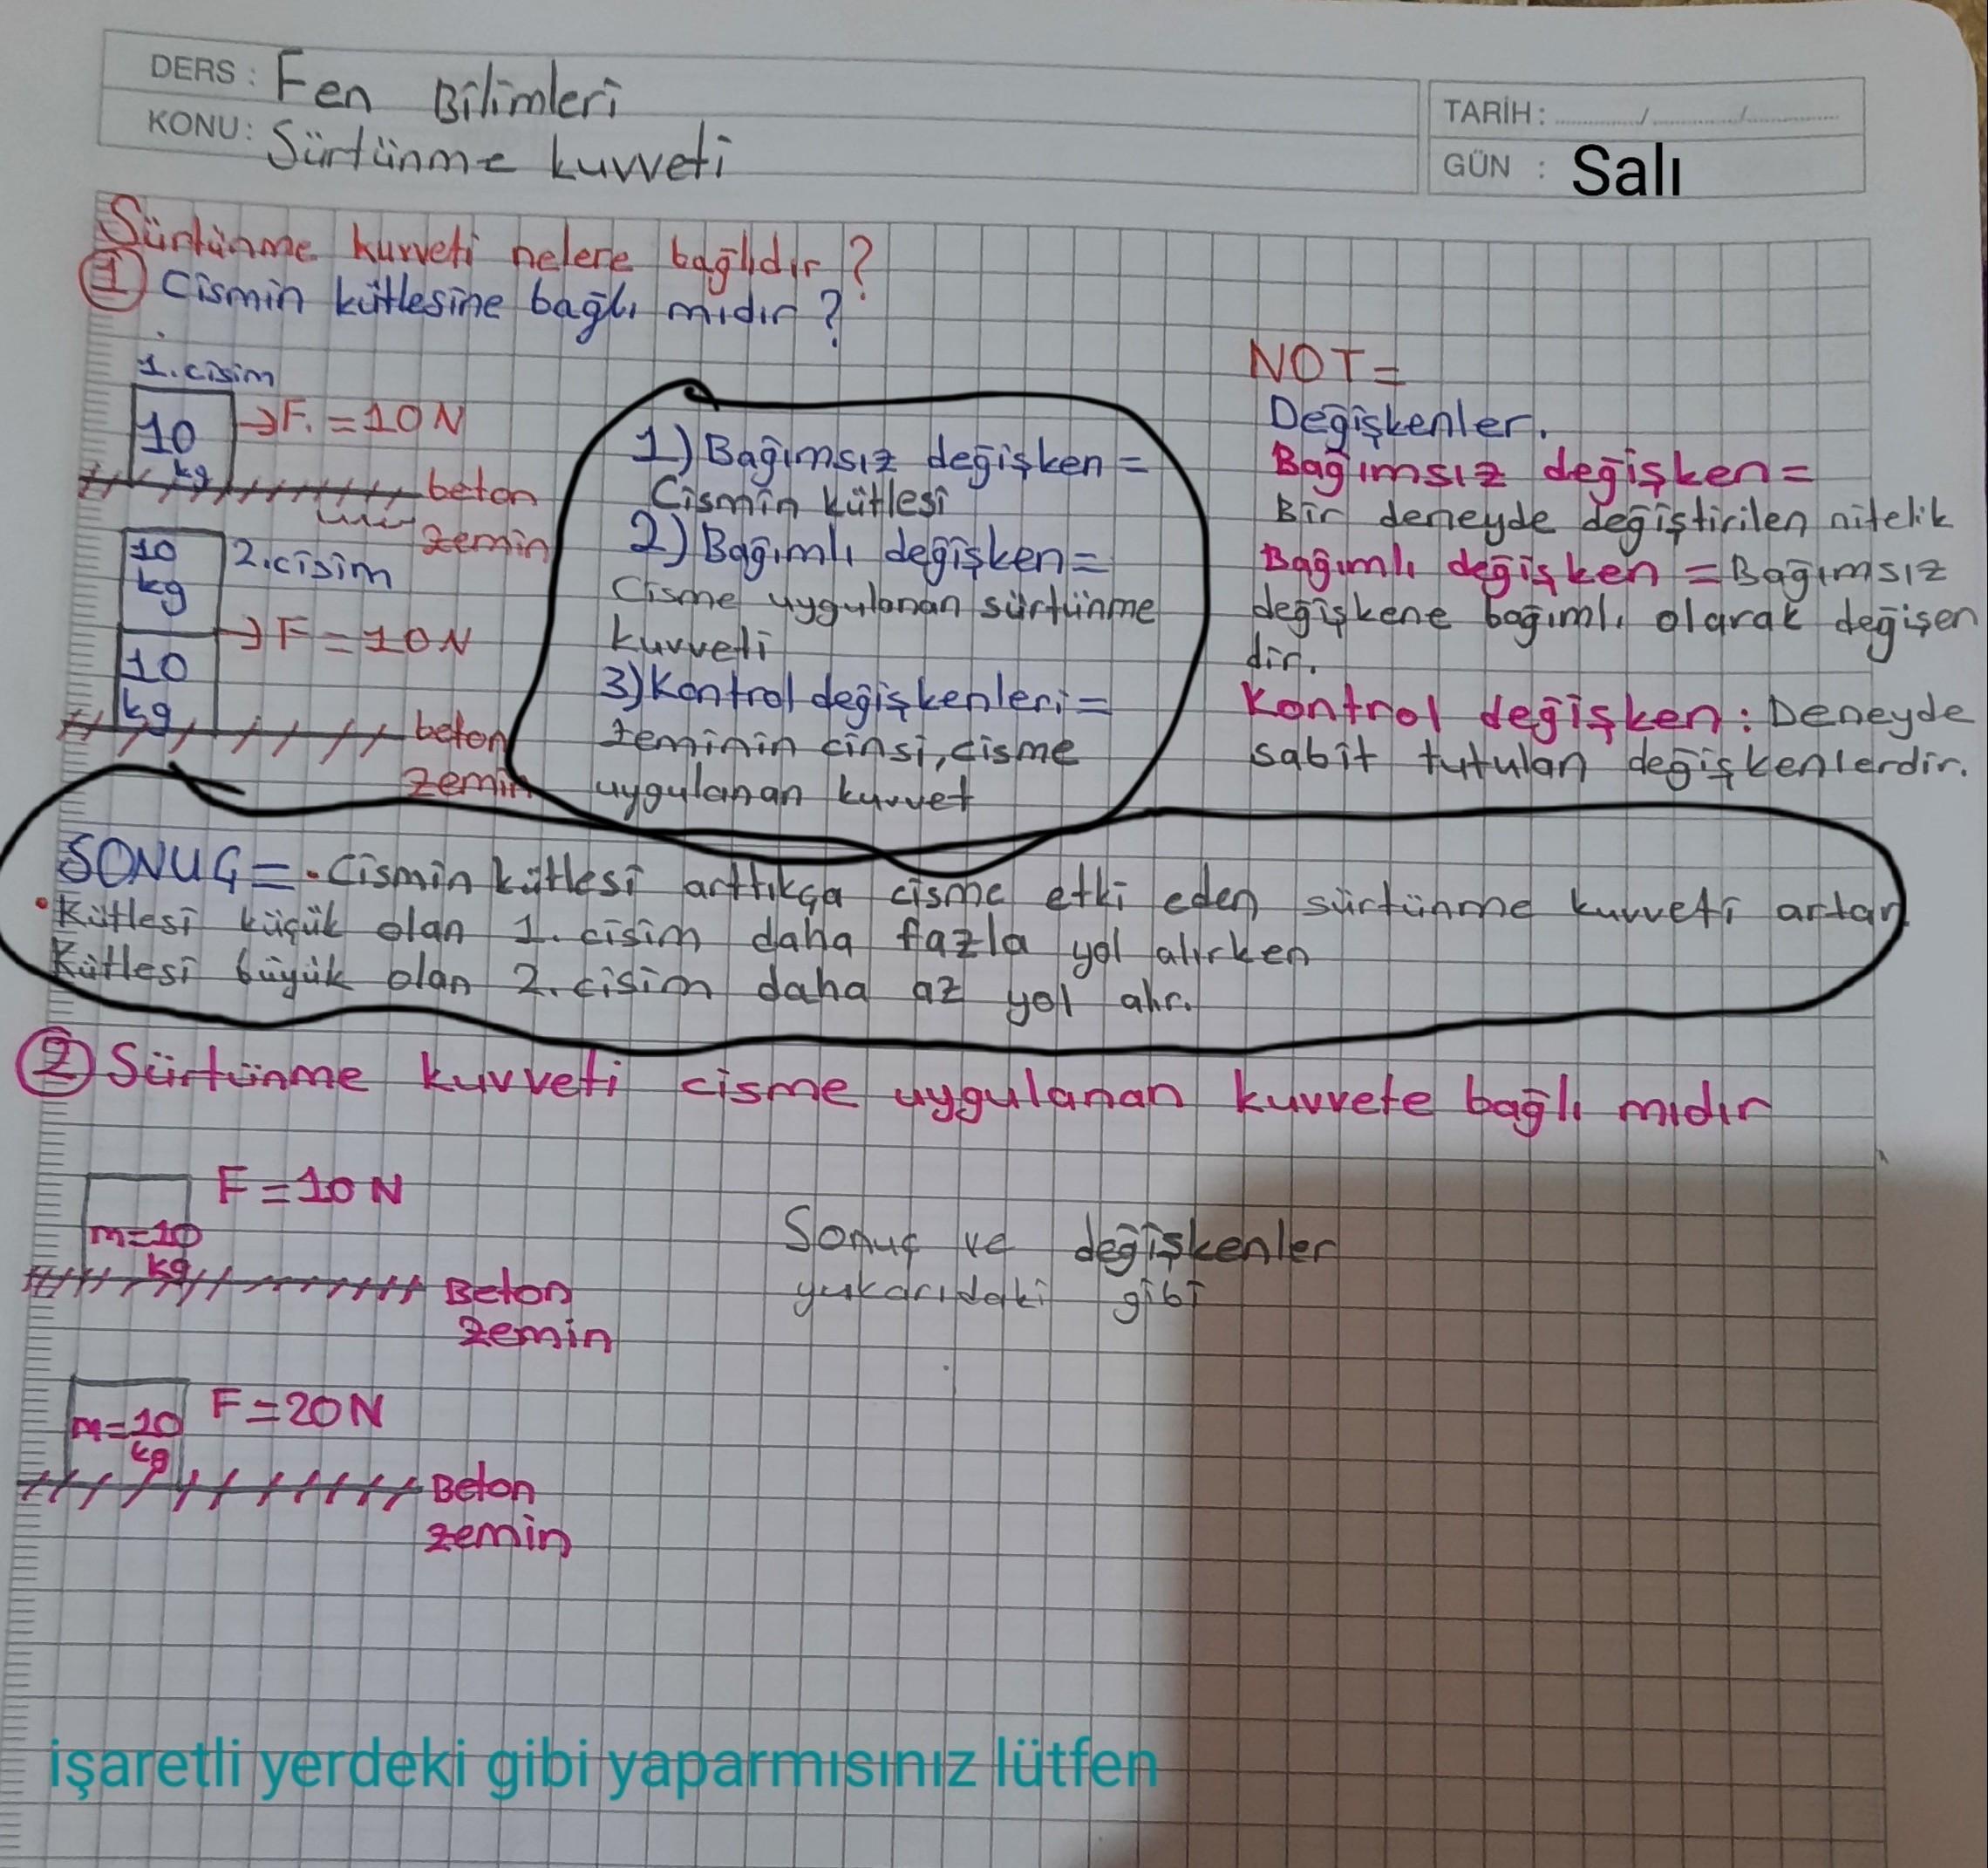 DERS : Fen Bilimleri
KONU: Sürtünme kuvveti
TARİH: ............/............/............
GÜN : Salı
Sürtünme kuvveti nelere bağlıdır ?
1 Cismin kütlesine bağlı mıdır ?
1. cisim
10 kg
→F. = 10 N
beton
zemin
10 kg
2. cisim
→F = 10 N
10 kg
beton
zemin
1) Bağımsız değişken =
Cismin kütlesi
2) Bağımlı değişken =
Cisme uygulanan sürtünme
kuvveti
3) Kontrol değişkenleri =
zeminin cinsi, cisme
uygulanan kuvvet
NOT =
Değişkenler.
Bağımsız değişken =
Bir deneyde değiştirilen nitelik
Bağımlı değişken = Bağımsız
değişkene bağımlı olarak değişen
dir.
Kontrol değişken : Deneyde
sabit tutulan değişkenlerdir.
SONUÇ = • Cismin kütlesi arttıkça cisme etki eden sürtünme kuvveti artar
• Kütlesi küçük olan 1. cisim daha fazla yol alırken
Kütlesi büyük olan 2. cisim daha az yol alır.
2 Sürtünme kuvveti cisme uygulanan kuvvete bağlı mıdır
F = 10 N
m=10
kg
Beton
zemin
Sonuç ve değişkenler
yukarıdaki gibi
F = 20 N
m=10
kg
Beton
zemin
işaretli yerdeki gibi yaparmısınız lütfen